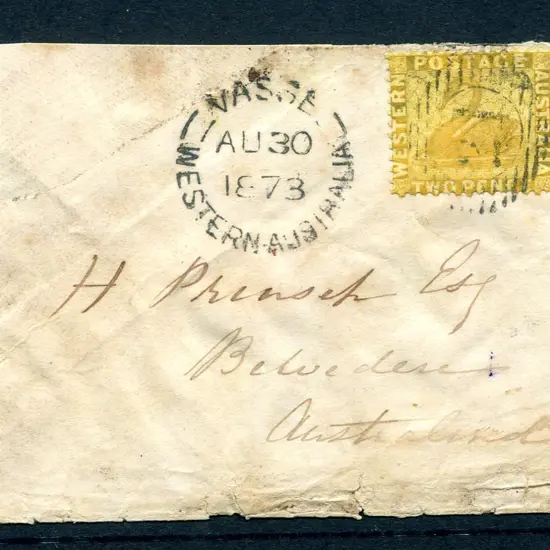 VASSE
AU 30
1873
WESTERN·AUSTRALIA
WESTERN
POSTAGE
AUSTRALIA
TWO PENC
H Prinsep Esq
Belvedere
Australind